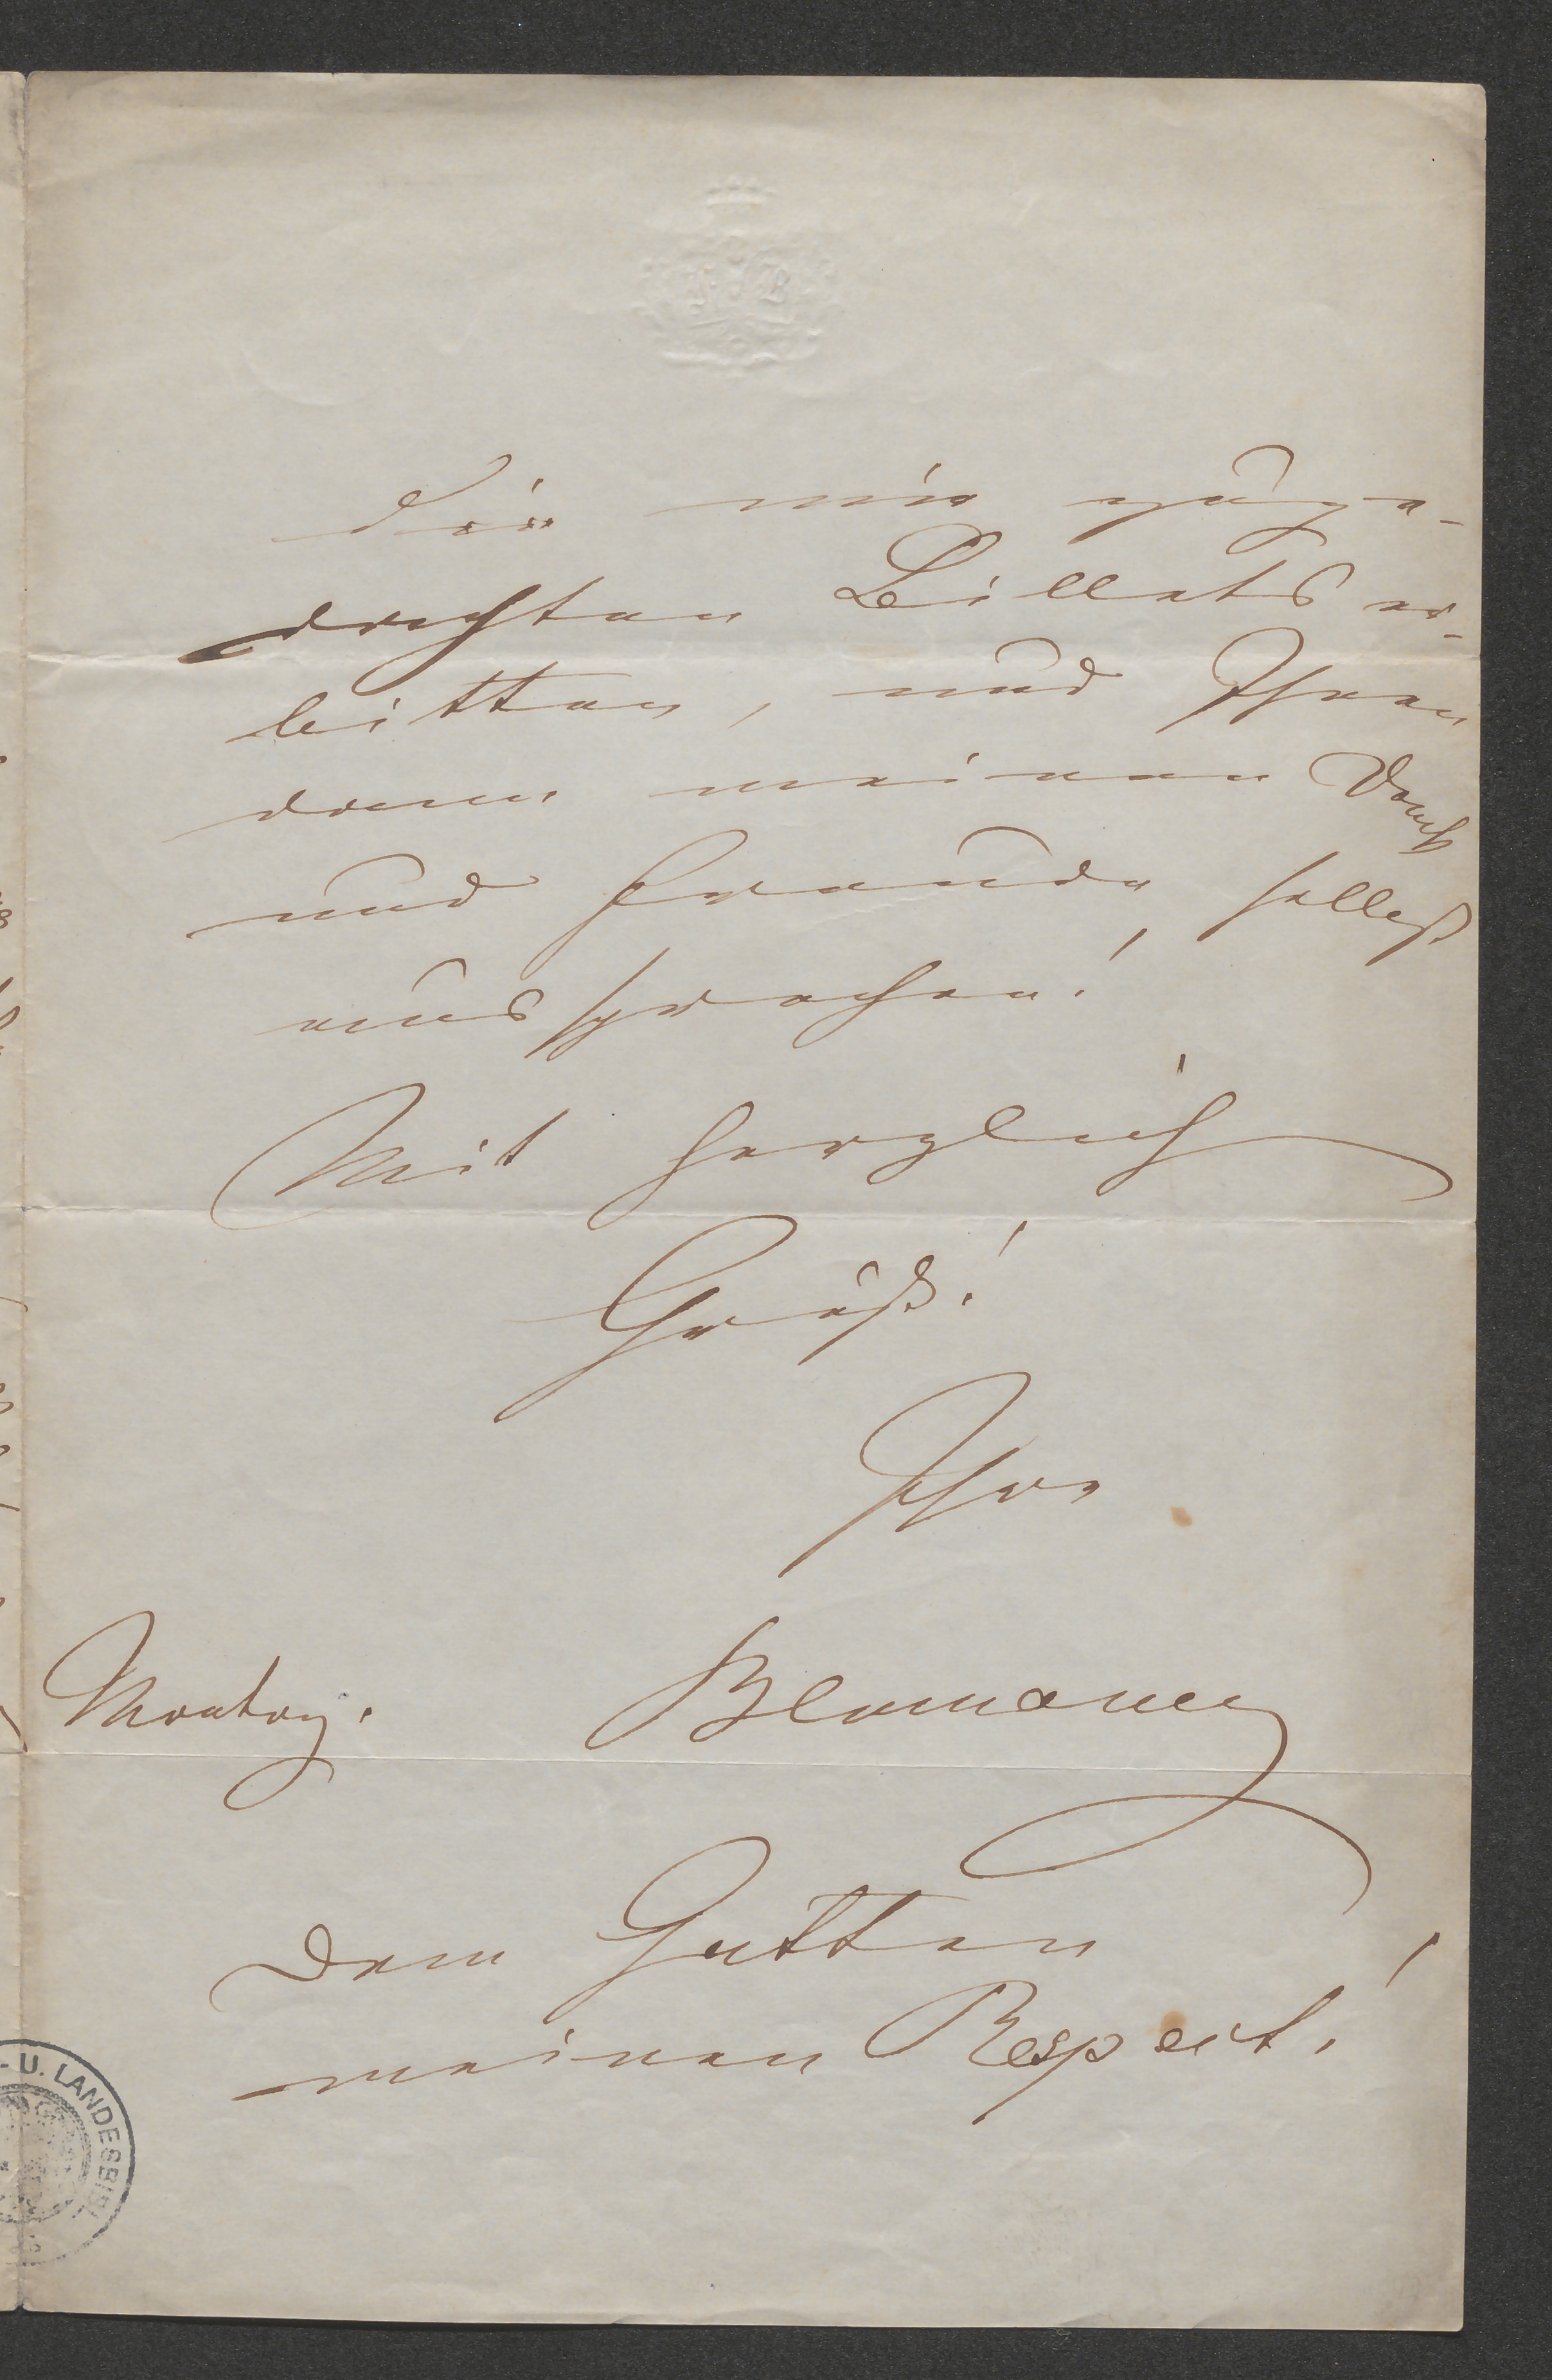 die mir zuge-
dachten Billets er-
bitten, und Ihnen
dann meinen Dank
und Freude selbst
aussprechen!
Mit herzlich
Gruß!
Ihre
Montag.
Dem Gatten
meinen Respect!
U. LANDESBIBL